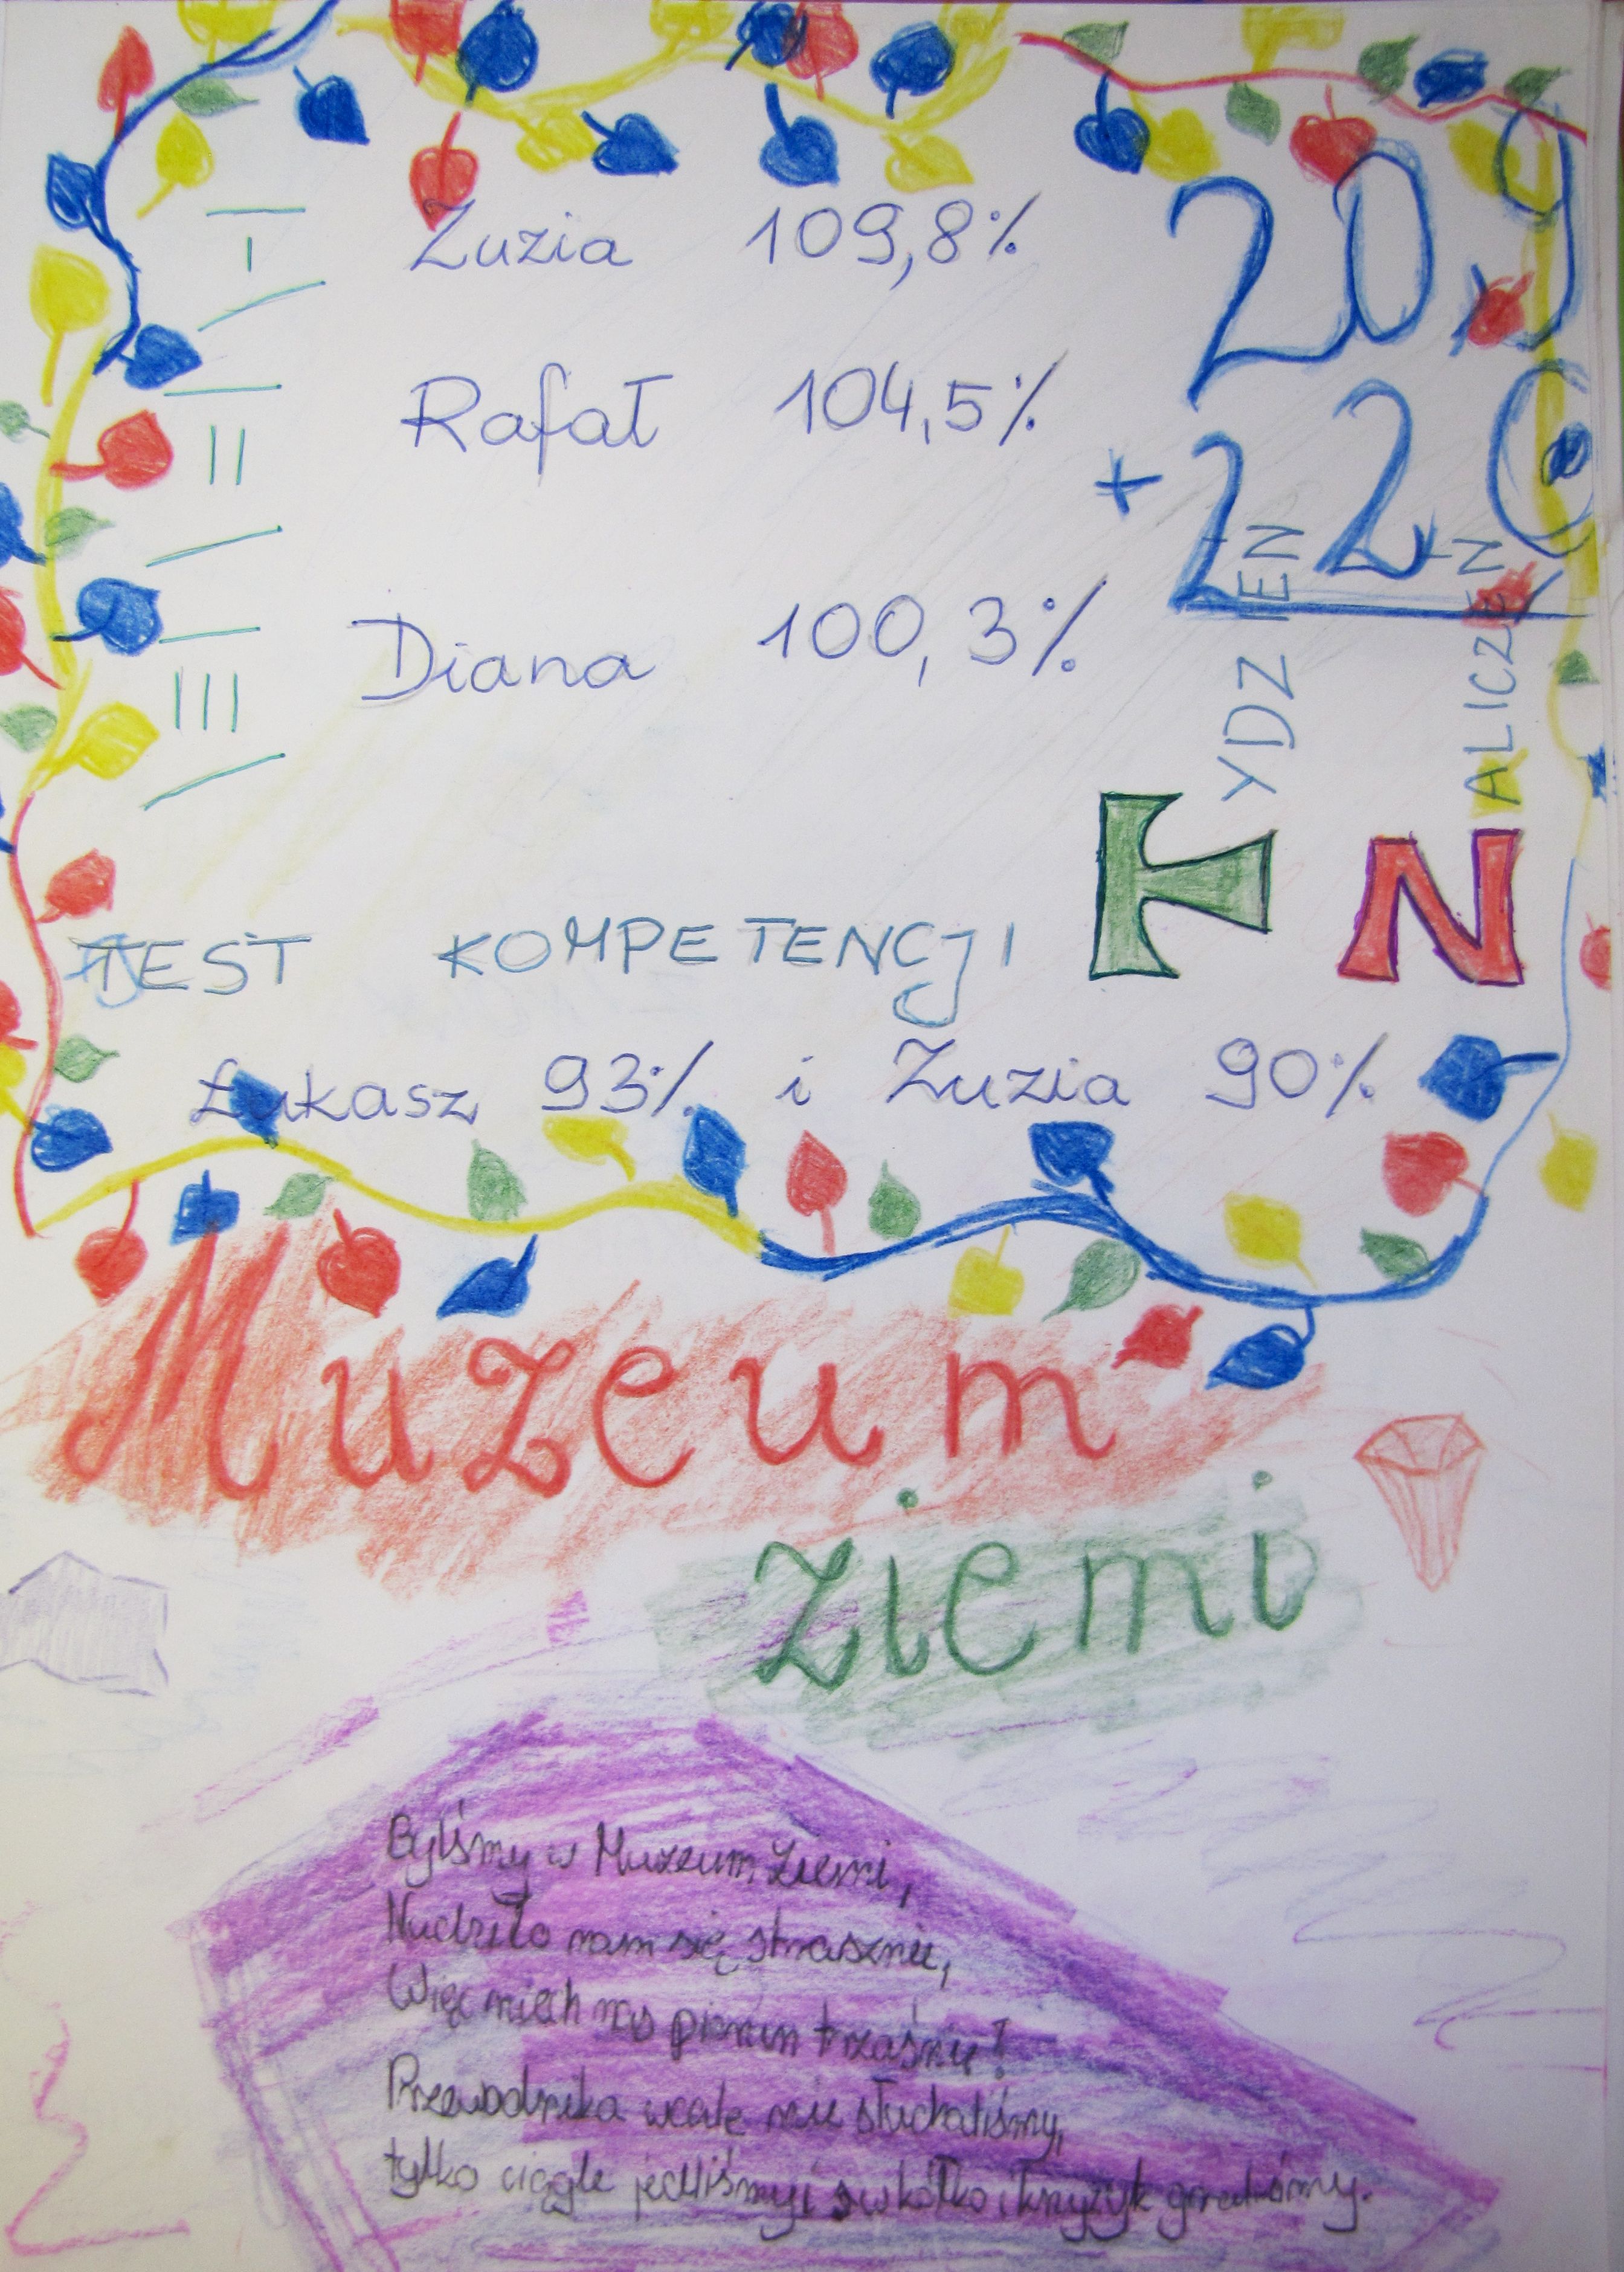 I Zuzia 109,8%
II Rafał 104,5%
III Diana 100,3%
209
+ 220
TYDZIEŃ
NALICZEŃ
TEST KOMPETENCJI
Łukasz 93% i Zuzia 90%
Muzeum
ziemi
Byliśmy w Muzeum Ziemi,
Nudziło nam się strasznie,
Więc niech nas piorun trzaśnie!
Przewodnika wcale nie słuchaliśmy,
tylko ciągle jedliśmy i w kółko i krzyżyk graliśmy.